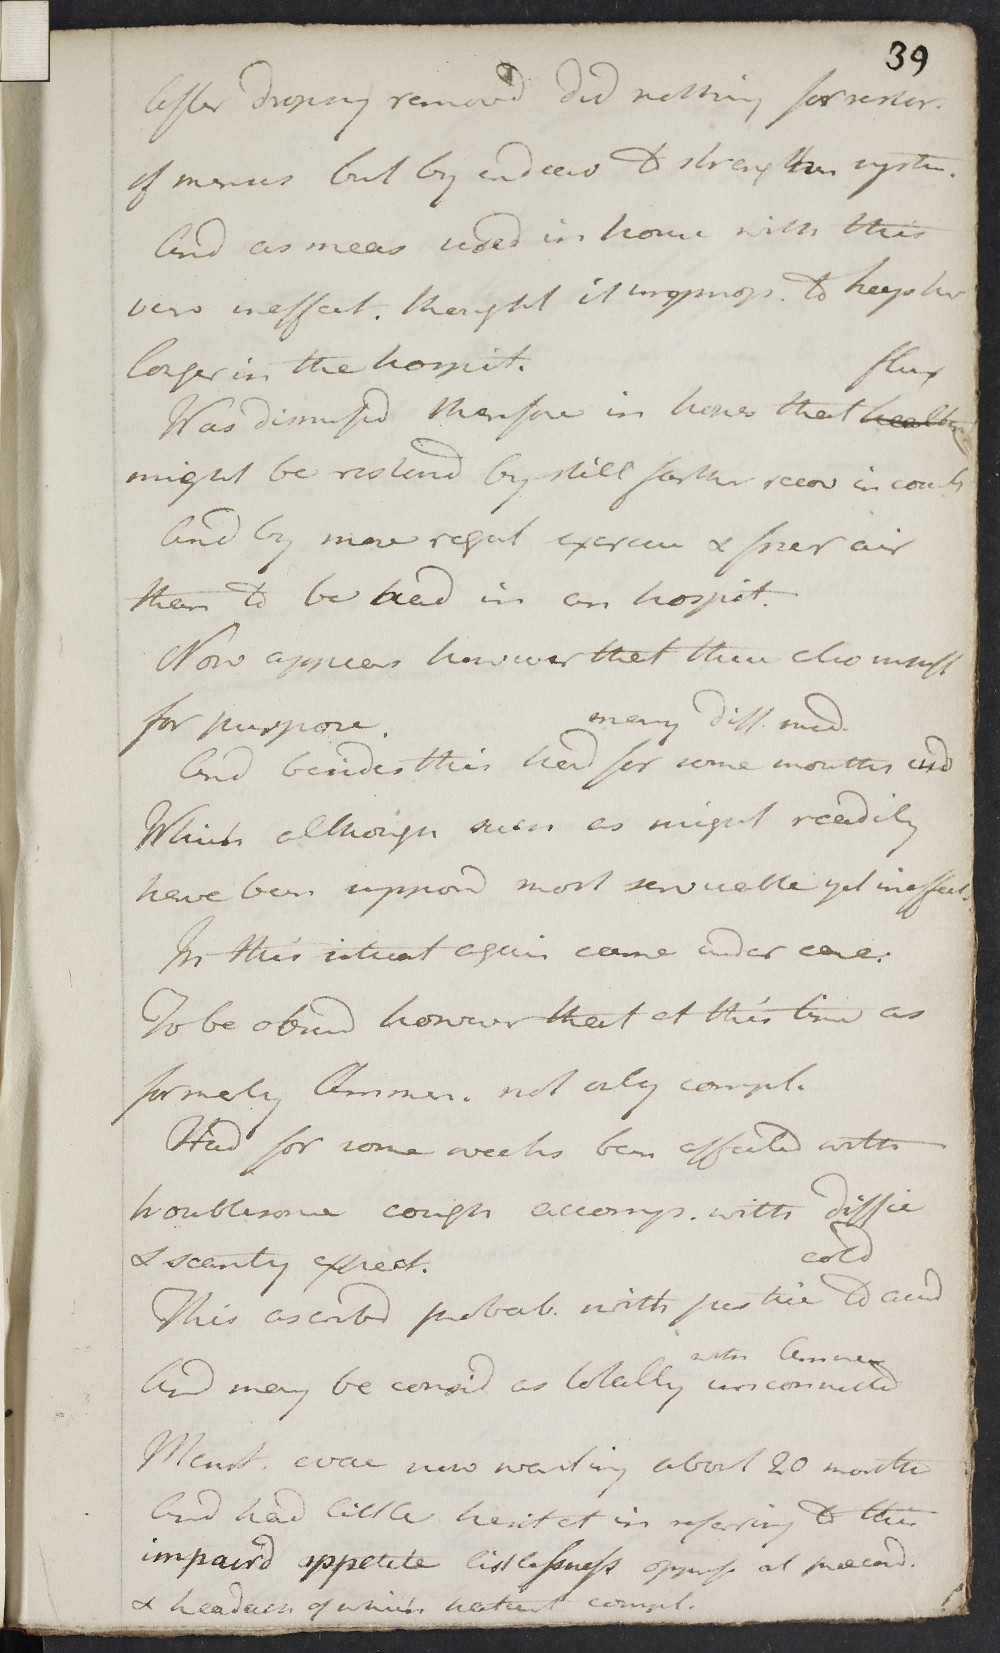 39
After dropsy removd did nothing for restor.
of menses but by endeav to strengthen system.
And as meas used in house with this
view ineffect. thought it improp. to keep her
longer in the hospit.
flux
Was dismissd therefore in hopes that health
might be restord by still farther recov in country
And by more regul exercise & freer air
than to be had in an hospit.
Now appears however that these also insuff
for purpose.
many diff. med.
And besides this had for some months usd
Which although such as might readily
have been supposd most serviceable yet ineffect.
In this situat again came under care.
To be observd however that at this time as
formerly Amenor. not only compl.
Had for some weeks been affected with
troublesome cough accomp. with diffic
& scanty expect.
cold
This ascribd probab. with justice to accid
with Amenor
And may be consid. as totally unconnected
Menst. evac now wanting about 20 months
And had little hesitat in referring to this
impair'd appetite listlessness oppress at præcord.
& headach of which patient compl.